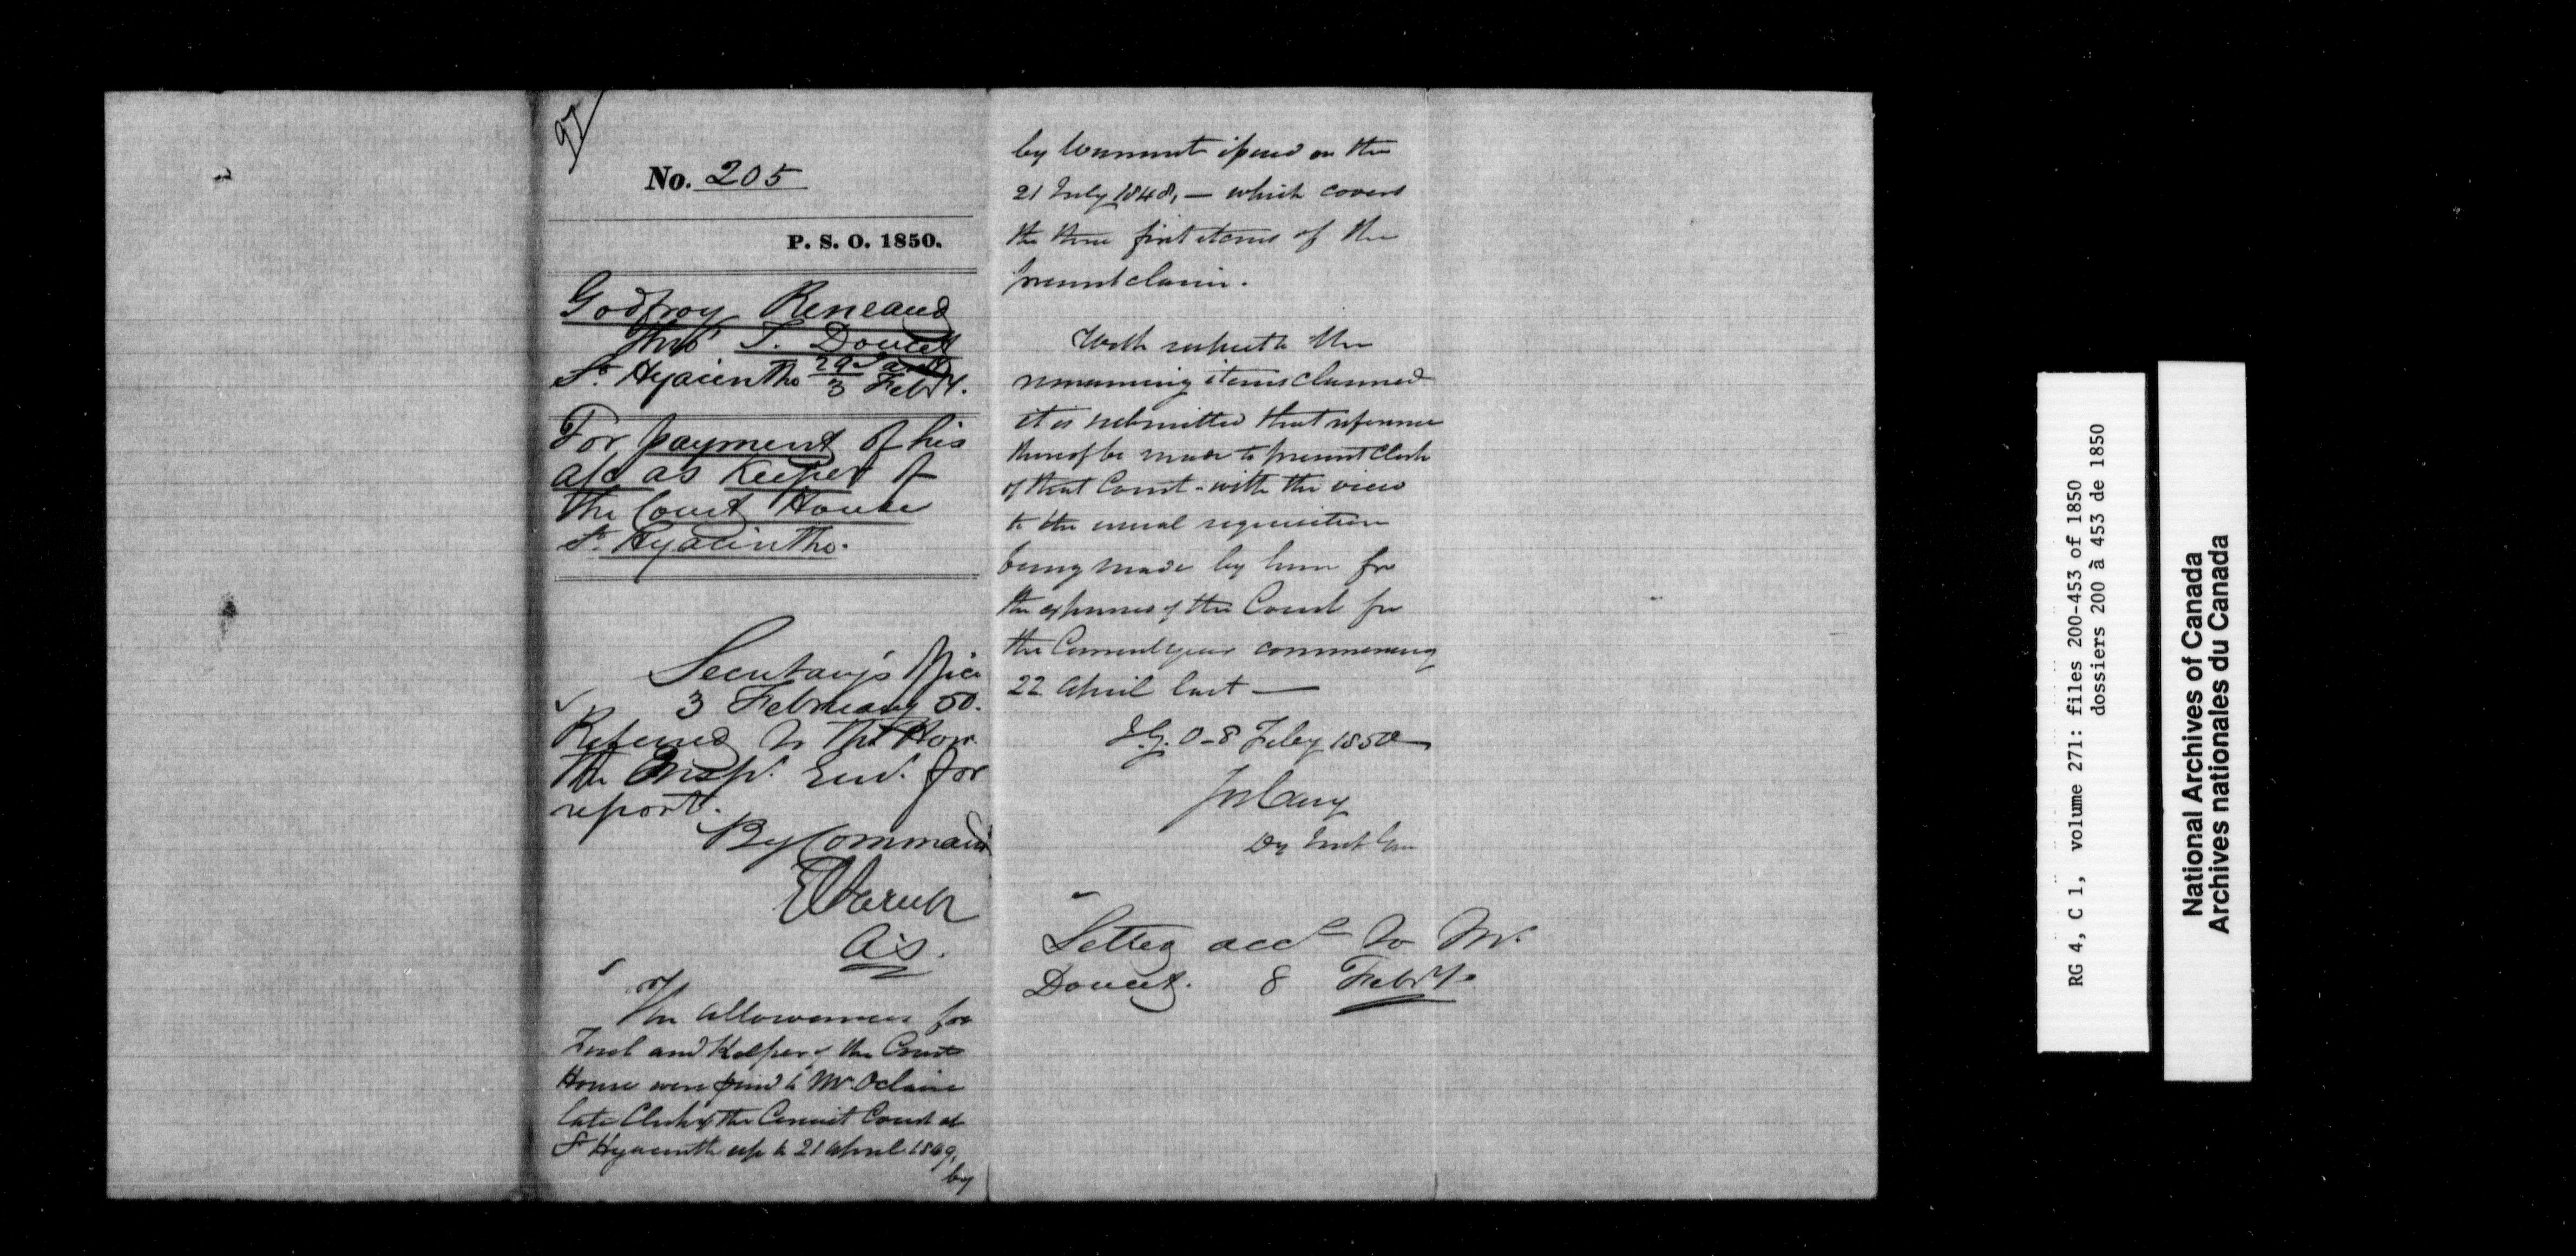 97
No. 205
P. S. O. 1850.
Godfroy Reneaud
Thro' T. Doucet
St. Hyacinthe 29 Jany
3 Feby.
For payment of his
a/c as Keeper of
the Court House
St. Hyacinthe.
Secretary's Office
3 February 50.
Referred to the Hon
the Insp. Genl. for
report.
By Command
A.S.
The allowances for
Fuel and Keeper of the Court
House were paid to Mr.
late Clerk of the Circuit Court at
St Hyacinthe up to 21 April 1849,
by
by Warrant issued on the
21 July 1848, — which covers
the three first items of the
present claim.
With respect to the
remaining items claimed
it is submitted that reference
thereof be made to present Clerk
of that Court - with the view
to the usual requisition
being made by him for
the expenses of the Court for
the Current year commencing
22 April last —
I.G.O. 8 Feby 1850
Jos Cary
Dy Inspt Gen
Letter accg to Mr.
Doucet. 8 Feby.
RG 4, C 1, volume 271: files 200-453 of 1850
dossiers 200 à 453 de 1850
National Archives of Canada
Archives nationales du Canada